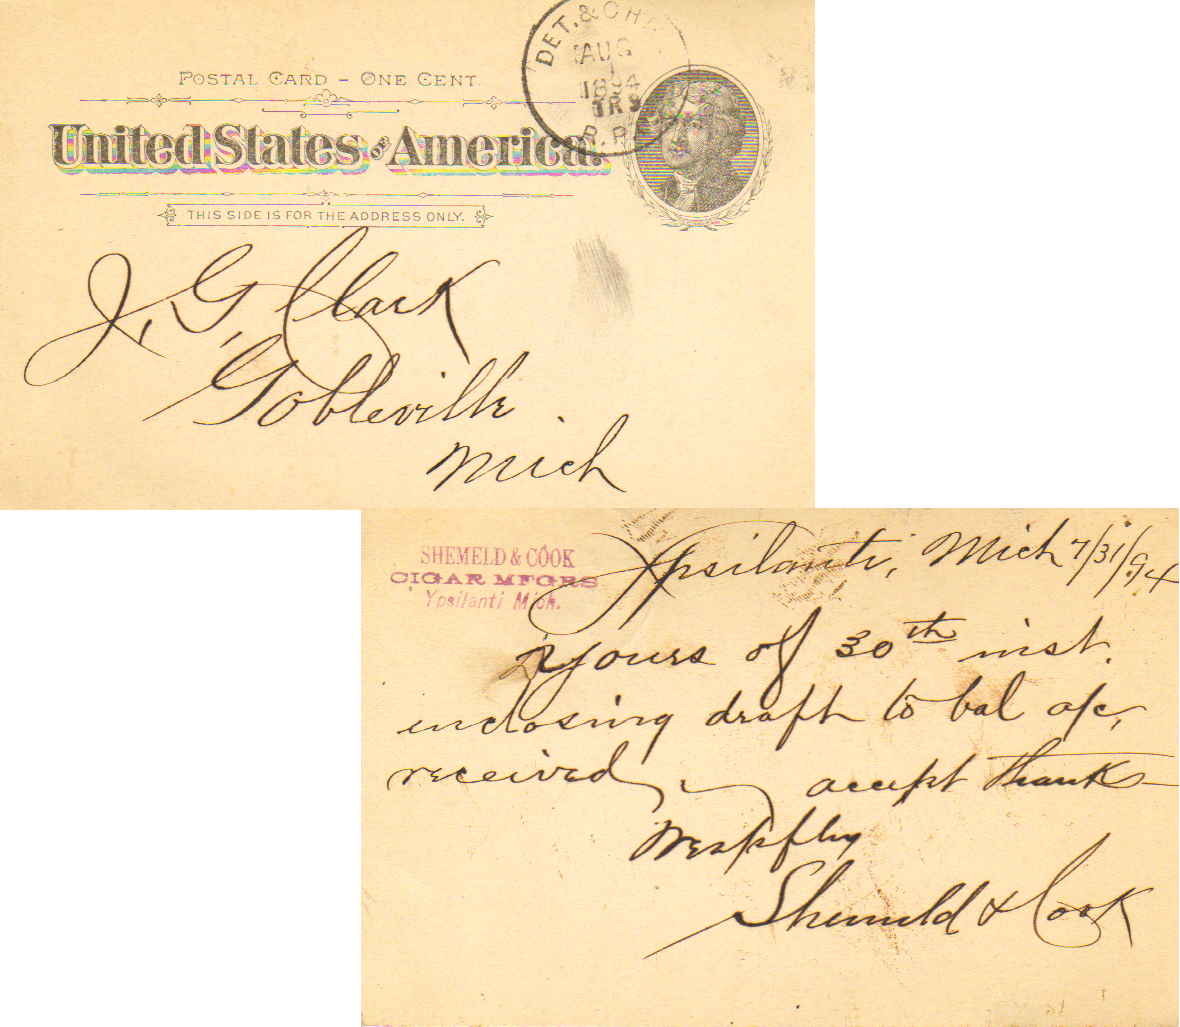 POSTAL CARD - ONE CENT.
United States of America.
THIS SIDE IS FOR THE ADDRESS ONLY.
DET. & CHI
AUG
1
1894
TR 9
R.P.
J. G. Clark
Gobleville
Mich
SHEMELD & COOK
CIGAR MFGRS
Ypsilanti Mich.
Ypsilanti, Mich 7/31/94
Yours of 30th inst.
enclosing draft to bal a/c,
received, accept thanks
Respfly
Shemeld & Cook